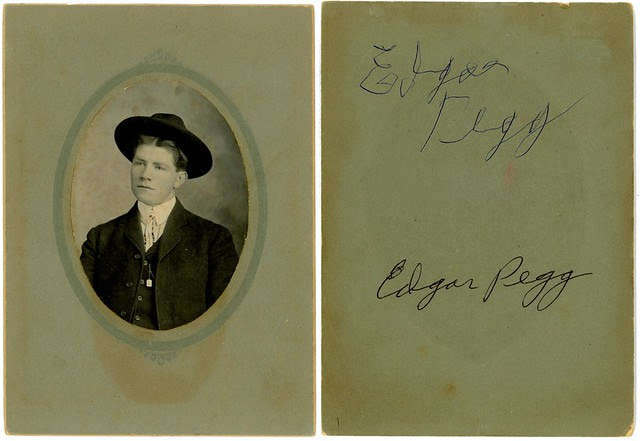 Edgar
Pegg
Edgar Pegg